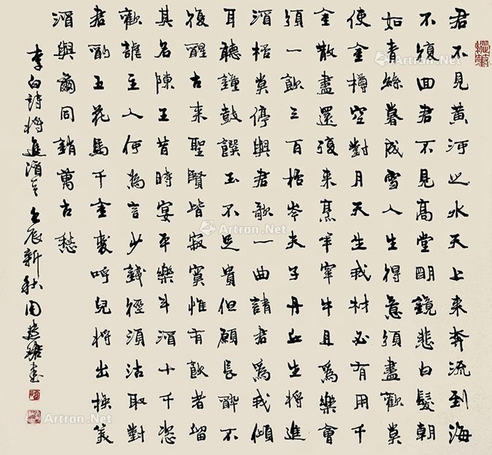 君不見黃河之水天上來奔流到海
不復回君不見高堂明鏡悲白髮朝
如青絲暮成雪人生得意須盡歡莫
使金樽空對月天生我材必有用千
金散盡還復來烹羊宰牛且為樂會
須一飲三百桮岑夫子丹丘生將進
酒桮莫停與君歌一曲請君為我傾
耳聽鐘鼓饌玉不足貴但願長醉不
復醒古來聖賢皆寂寞惟有飲者留
其名陳王昔時宴平樂斗酒十千恣
歡謔主人何為言少錢徑須沽取對
君酌五花馬千金裘呼兒將出換美
酒與爾同銷萬古愁
李白詩將進酒 壬辰新秋周慧珺書
Artron.Net